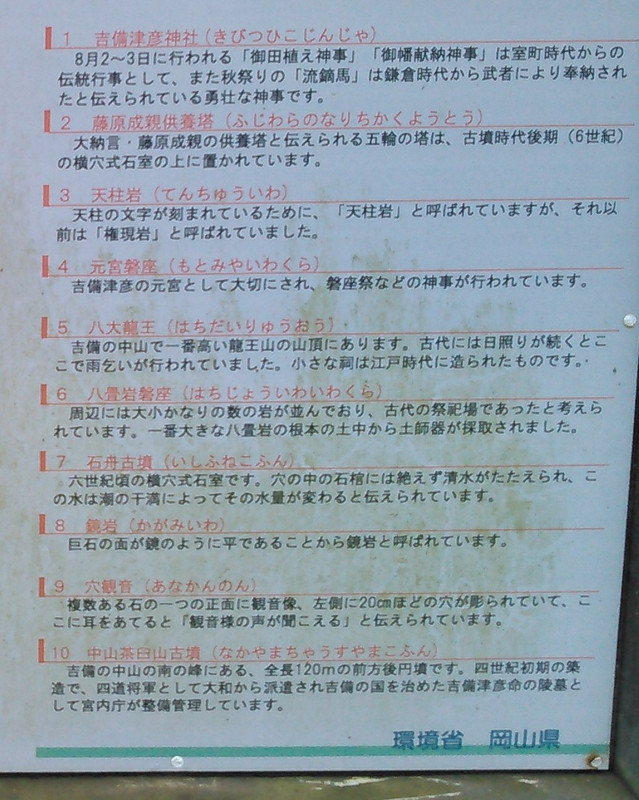 1　吉備津彦神社（きびつひこじんじゃ）
8月2～3日に行われる「御田植え神事」「御幡献納神事」は室町時代からの
伝統行事として、また秋祭りの「流鏑馬」は鎌倉時代から武者により奉納され
たと伝えられている勇壮な神事です。
2　藤原成親供養塔（ふじわらのなりちかくようとう）
大納言・藤原成親の供養塔と伝えられる五輪の塔は、古墳時代後期（6世紀）
の横穴式石室の上に置かれています。
3　天柱岩（てんちゅういわ）
天柱の文字が刻まれているために、「天柱岩」と呼ばれていますが、それ以
前は「権現岩」と呼ばれていました。
4　元宮磐座（もとみやいわくら）
吉備津彦の元宮として大切にされ、磐座祭などの神事が行われています。
5　八大龍王（はちだいりゅうおう）
吉備の中山で一番高い龍王山の山頂にあります。古代には日照りが続くとこ
こで雨乞いが行われていました。小さな祠は江戸時代に造られたものです。
6　八畳岩磐座（はちじょういわいわくら）
周辺には大小かなりの数の岩が並んでおり、古代の祭祀場であったと考えら
れています。一番大きな八畳岩の根本の土中から土師器が採取されました。
7　石舟古墳（いしふねこふん）
六世紀頃の横穴式石室です。穴の中の石棺には絶えず清水がたたえられ、こ
の水は潮の干満によってその水量が変わると伝えられています。
8　鏡岩（かがみいわ）
巨石の面が鏡のように平であることから鏡岩と呼ばれています。
9　穴観音（あなかんのん）
複数ある石の一つの正面に観音像、左側に20㎝ほどの穴が彫られていて、こ
こに耳をあてると「観音様の声が聞こえる」と伝えられています。
10　中山茶臼山古墳（なかやまちゃうすやまこふん）
吉備の中山の南の峰にある、全長120mの前方後円墳です。四世紀初期の築
造で、四道将軍として大和から派遣され吉備の国を治めた吉備津彦命の陵墓と
して宮内庁が整備管理しています。
環境省　岡山県